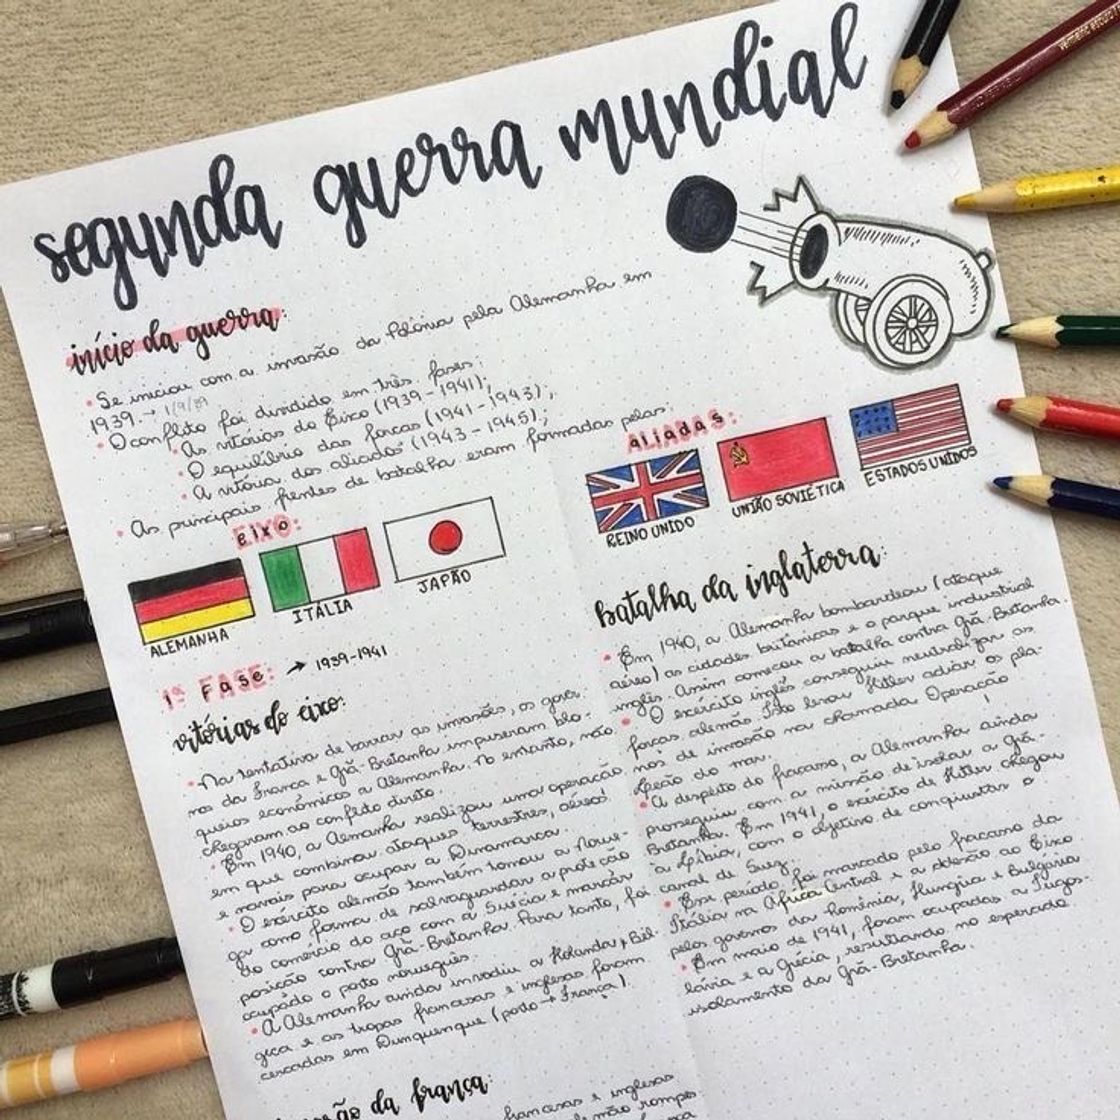 segunda guerra mundial
início da guerra:
• Se iniciou com a invasão da Polônia pela Alemanha em
1939. → 1/9/39
• O conflito foi dividido em três fases:
• As vitórias do Eixo (1939-1941);
• O equilíbrio das forças (1941-1943);
• A vitória dos aliados (1943-1945);
• As principais frentes de batalha eram formadas pelas:
eixo:
ALEMANHA
ITÁLIA
JAPÃO
aliadas:
REINO UNIDO
UNIÃO SOVIÉTICA
ESTADOS UNIDOS
1ª FASE: → 1939-1941
vitórias do eixo:
• Na tentativa de barrar as invasões, os gover-
nos da França e Grã-Bretanha impuseram blo-
queios econômicos a Alemanha. No entanto, não
chegaram ao conflito direto.
• Em 1940, a Alemanha realizou uma operação
em que combinou ataques terrestres, aéreos
e navais para ocupar a Dinamarca.
• O exército alemão também tomou a Norue-
ga como forma de salvaguardar a proteção
do comércio do aço com a Suécia e marcar
posição contra Grã-Bretanha. Para tanto, foi
ocupado o porto norueguês.
• A Alemanha ainda invadiu a Holanda e Bél-
gica e as tropas francesas e inglesas foram
cercadas em Dunquerque (porto → França).
da frança:
francesas e inglesas
não rompe
batalha da inglaterra:
• Em 1940, a Alemanha bombardeou (ataque
aéreo) as cidades britânicas e o parque industrial
inglês. Assim começou a batalha contra Grã-Bretanha.
• O exército inglês conseguiu neutralizar as
forças alemãs. Isto levou Hitler adiar os pla-
nos de invasão na chamada Operação
Leão do mar.
• A despeito do fracasso, a Alemanha ainda
prosseguiu com a missão de isolar a Grã-
Bretanha. Em 1941, o exército de Hitler chegou
à Líbia, com o objetivo de conquistar o
canal de Suez.
• Esse período foi marcado pelo fracasso da
Itália na África Central e a adesão ao Eixo
pelos governos da Romênia, Hungria e Bulgária.
• Em maio de 1941, foram ocupadas a Iugos-
lávia e a Grécia, resultando no esperado
isolamento da Grã-Bretanha.